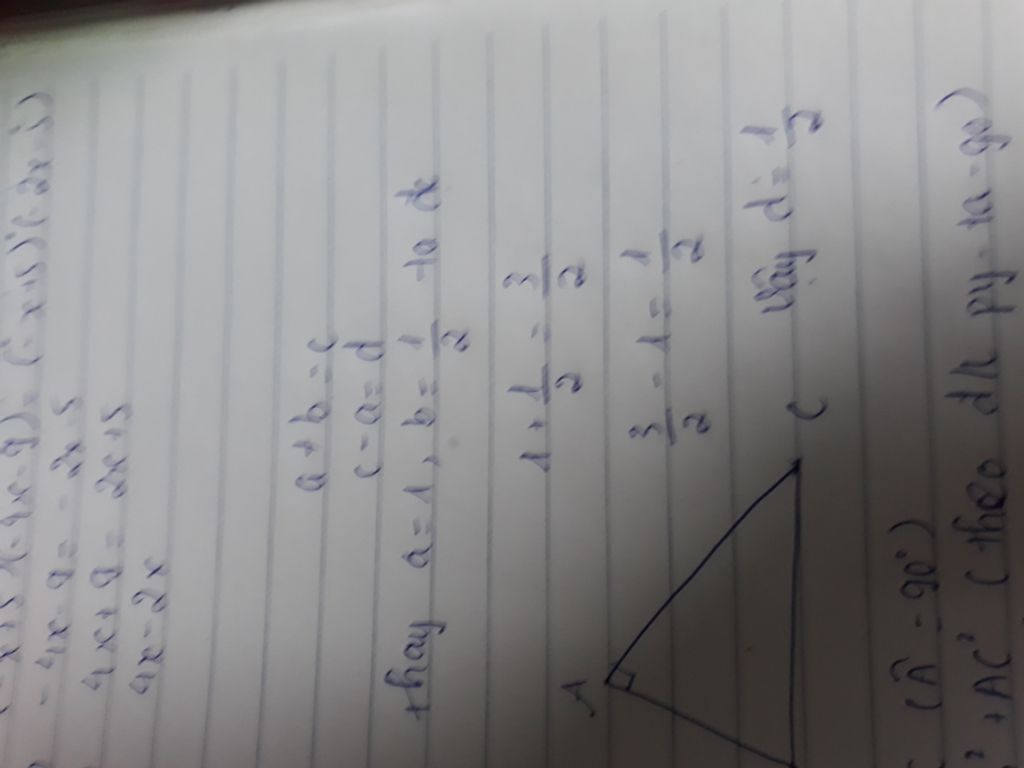 (-4x-9) = (-x+5)(-2x-5)
-4x-9 = -2x-5
4x+9 = 2x+5
4x-2x
a+b=c
c-a=d
thay a=1, b=1/2 ta đc
1+1/2=3/2
3/2-1=1/2
Vậy d=1/2
A
C
(Â=90°)
²+AC² (theo đh py-ta-go)